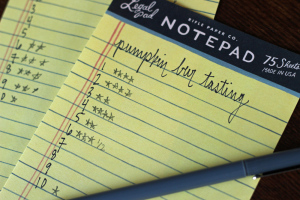 Legal Pad
RIFLE PAPER CO.
NOTEPAD
75 Sheets
MADE IN USA
pumpkin beer tasting
1 ****
2 ****
3 **
4 ****
5 **
6 ***1/2
7
8
9
10 *
2
3
4
5
6
7
8
9
10 *